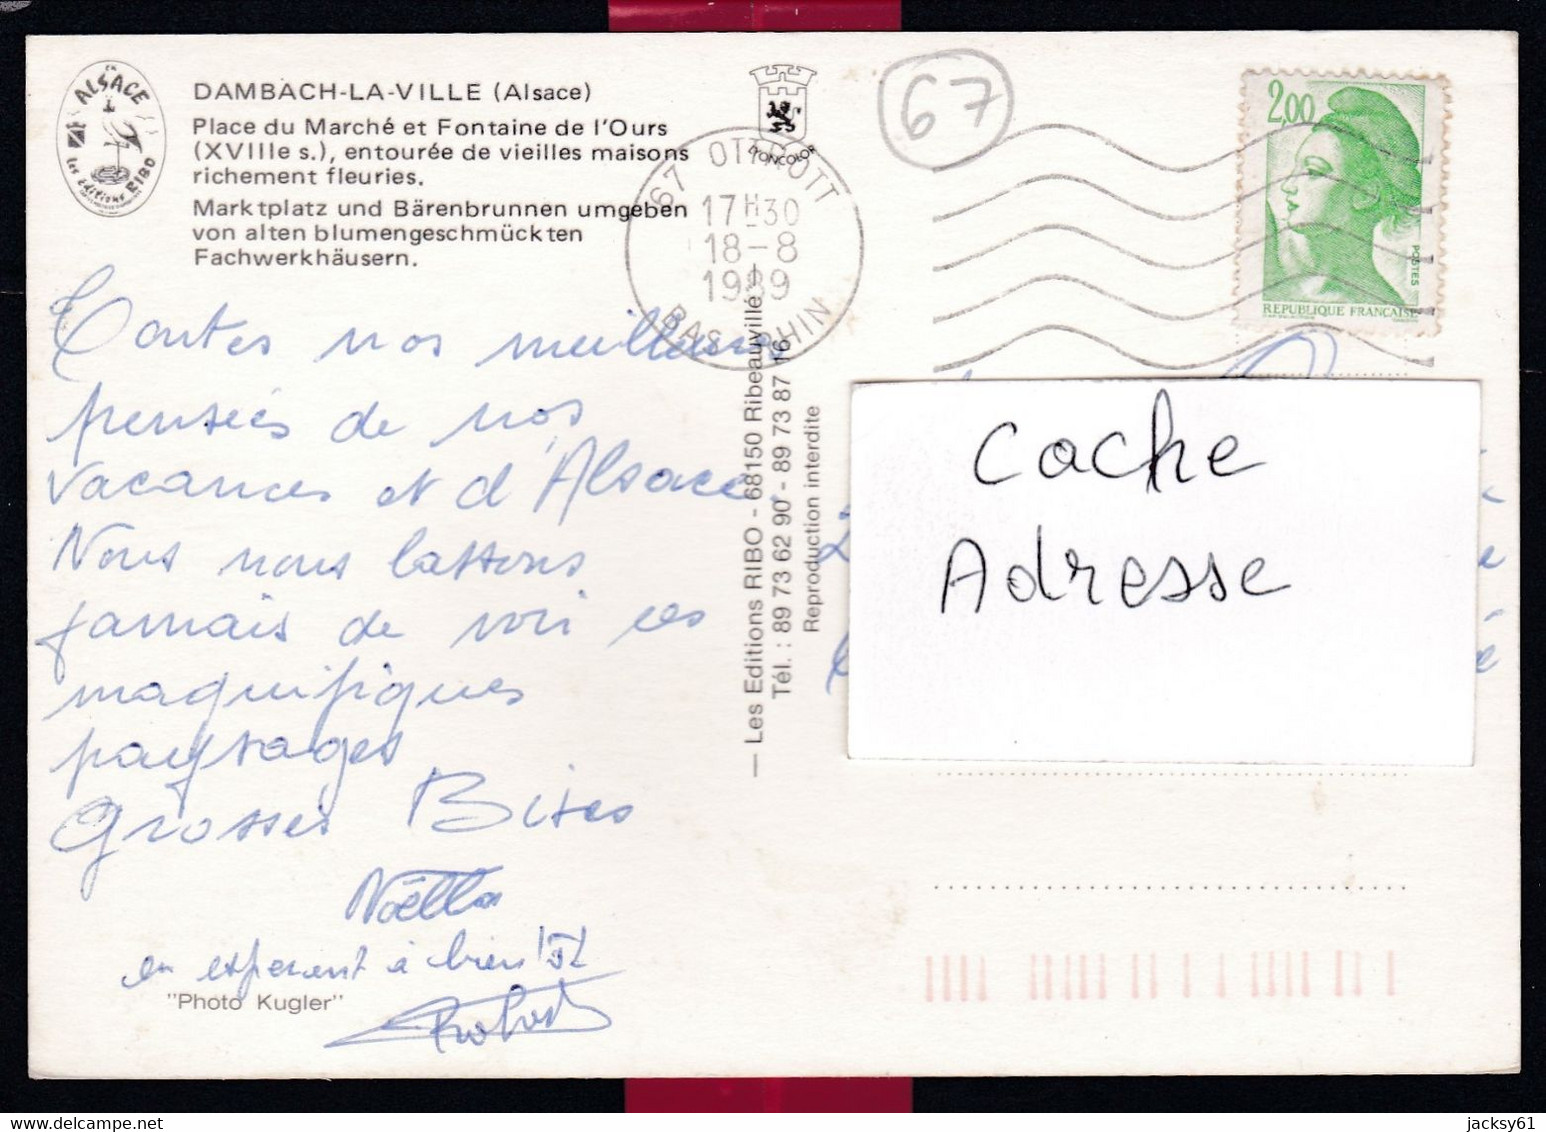 EN
ALSACE
les éditions RIBO
DAMBACH-LA-VILLE (Alsace)
Place du Marché et Fontaine de l'Ours
(XVIIIe s.), entourée de vieilles maisons
richement fleuries.
Marktplatz und Bärenbrunnen umgeben
von alten blumengeschmückten
Fachwerkhäusern.
Toutes nos meilleures
pensées de nos
vacances et d'Alsace.
Nous nous lassons
jamais de voir ces
magnifiques
paysages
Grosses Bises
Noëlla
en esperant à bientôt
"Photo Kugler"
LYONCOLOR
67 OTTROTT
17H30
18-8
1989
BAS RHIN
— Les Editions RIBO - 68150 Ribeauvillé —
Tél. : 89 73 62 90 - 89 73 87 16
Reproduction interdite
67
2,00
POSTES
REPUBLIQUE FRANCAISE
Cache
Adresse
jacksy61